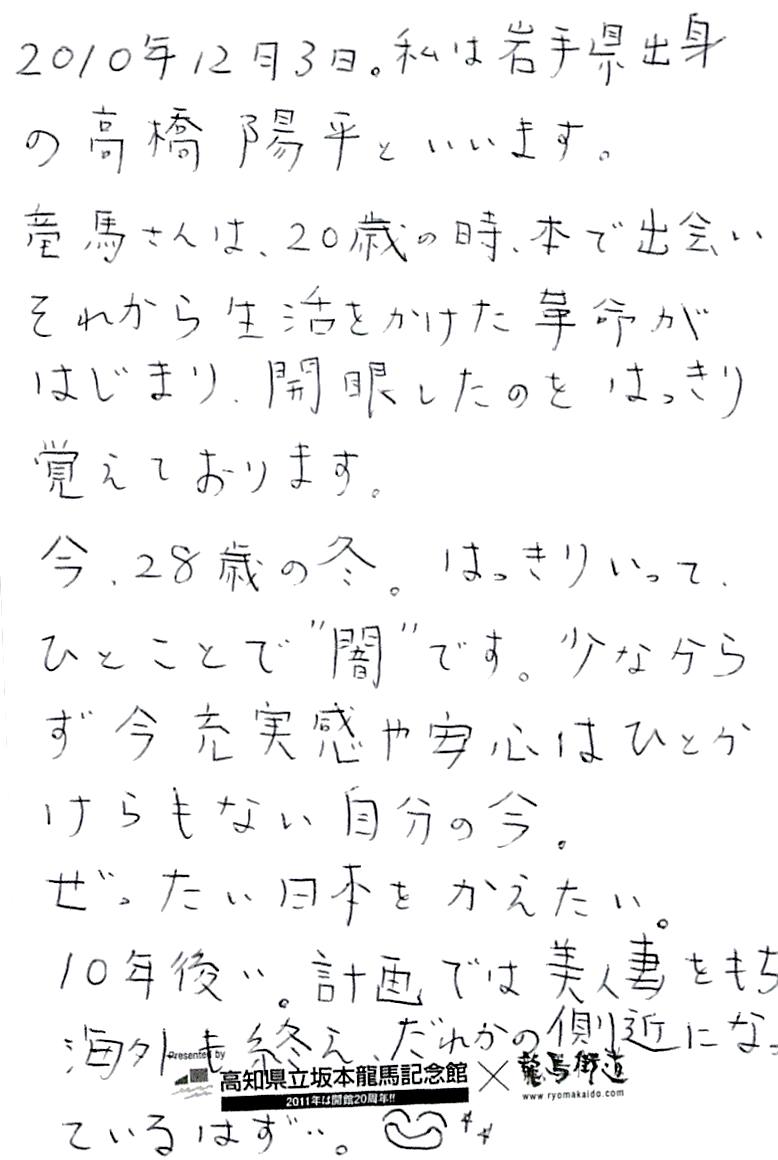 2010年12月3日。私は岩手県出身
の高橋 陽平といいます。
竜馬さんは、20歳の時、本で出会い
それから生活をかけた革命が
はじまり、開眼したのをはっきり
覚えております。
今、28歳の冬。はっきりいって、
ひとことで"闇"です。少なから
ず今充実感や安心はひとか
けらもない自分の今。
ぜったい日本をかえたい。
10年後…。計画では美人妻をもち
海外も終え、だれかの側近になっ
Presented by
高知県立坂本龍馬記念館×龍馬街道
2011年は開館20周年!!
www.ryomakaido.com
ているはず…。